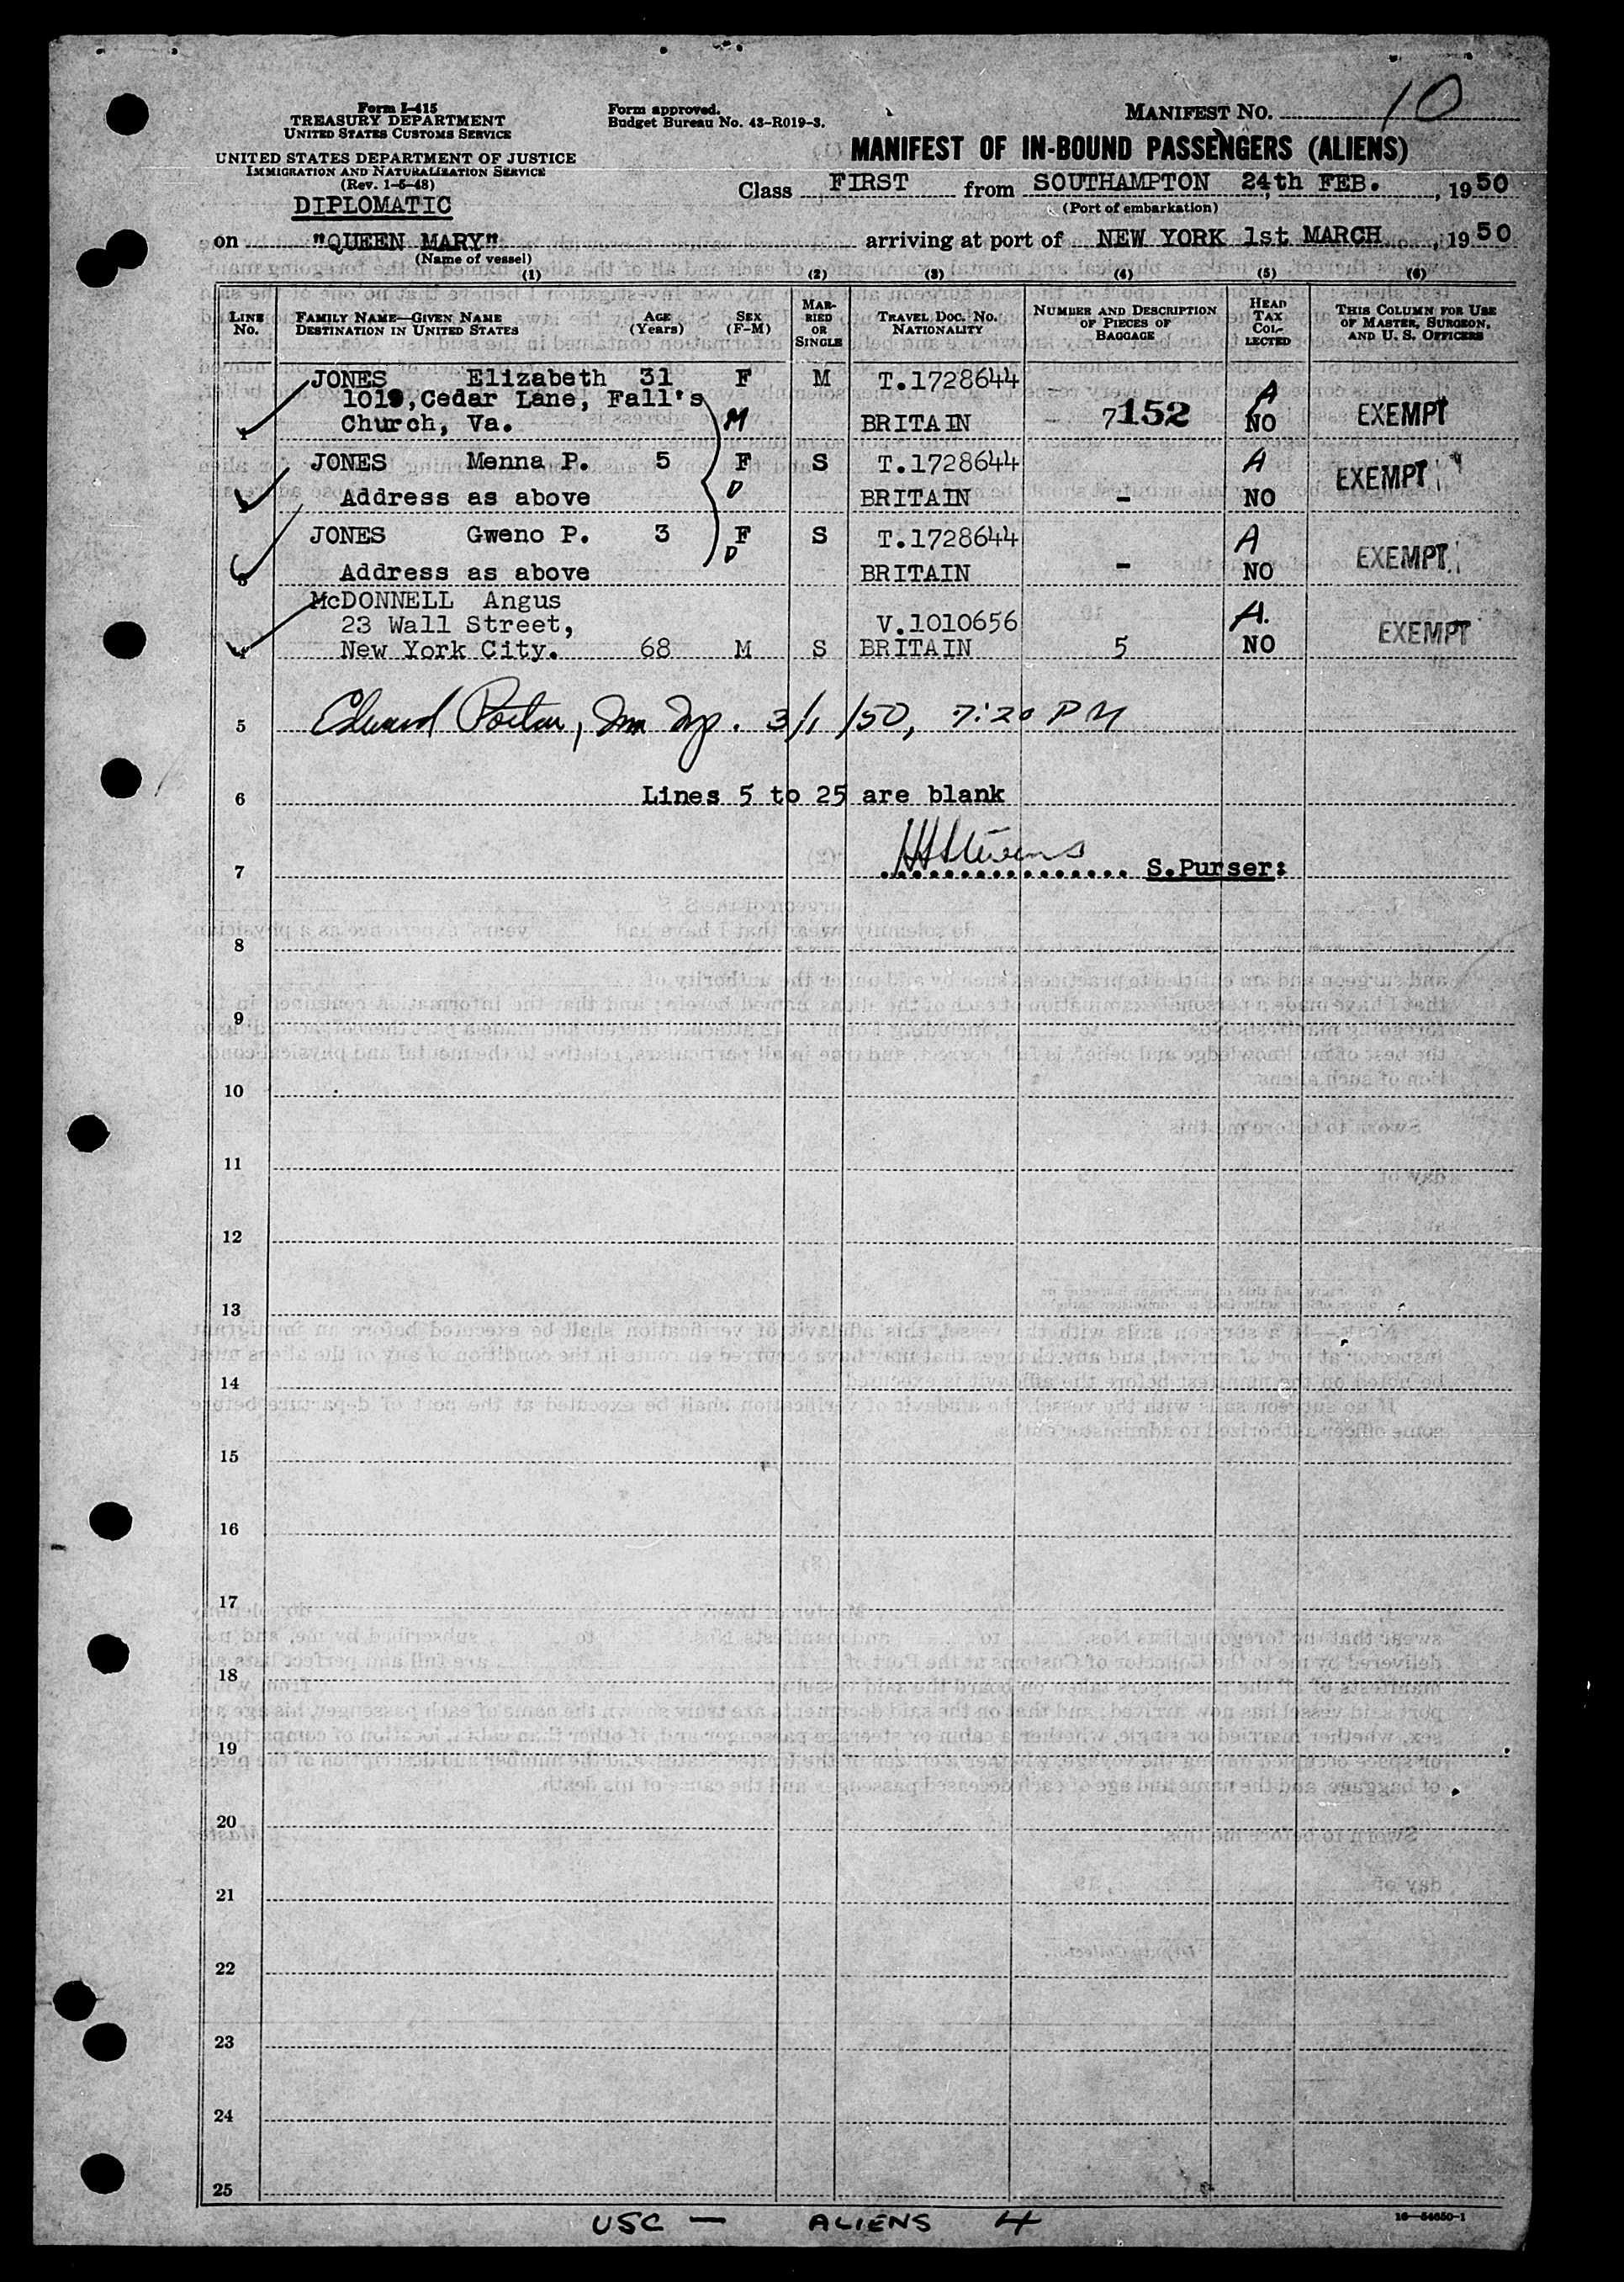 Form I-415
TREASURY DEPARTMENT
UNITED STATES CUSTOMS SERVICE
UNITED STATES DEPARTMENT OF JUSTICE
IMMIGRATION AND NATURALIZATION SERVICE
(Rev. 1-5-48)
DIPLOMATIC
Form approved.
Budget Bureau No. 43-R019-3.
MANIFEST NO. 10
MANIFEST OF IN-BOUND PASSENGERS (ALIENS)
Class FIRST from SOUTHAMPTON 24,th FEB. , 1950
(Port of embarkation)
on "QUEEN MARY" arriving at port of NEW YORK 1st MARCH , 1950
(Name of vessel)
(1) (2) (3) (4) (5) (6)
LINE No. FAMILY NAME—GIVEN NAME DESTINATION IN UNITED STATES AGE (Years) SEX (F-M) MARRIED OR SINGLE TRAVEL DOC. NO. NATIONALITY NUMBER AND DESCRIPTION OF PIECES OF BAGGAGE HEAD TAX COLLECTED THIS COLUMN FOR USE OF MASTER, SURGEON, AND U. S. OFFICERS
JONES Elizabeth 31 F M T.1728644 A
1019,Cedar Lane, Fall's
Church, Va. M BRITAIN 7152 NO EXEMPT
JONES Menna P. 5 F S T.1728644 A EXEMPT
Address as above D BRITAIN - NO
JONES Gweno P. 3 F S T.1728644 A
Address as above D BRITAIN - NO EXEMPT
McDONNELL Angus
23 Wall Street, V.1010656 A. EXEMPT
New York City. 68 M S BRITAIN 5 NO
5 Edward Porter, Imm Insp. 3/1/50, 7:20 PM
6 Lines 5 to 25 are blank
7 HHStevens S.Purser:
8
9
10
11
12
13
14
15
16
17
18
19
20
21
22
23
24
25
USC — ALIENS 4
16—54650-1